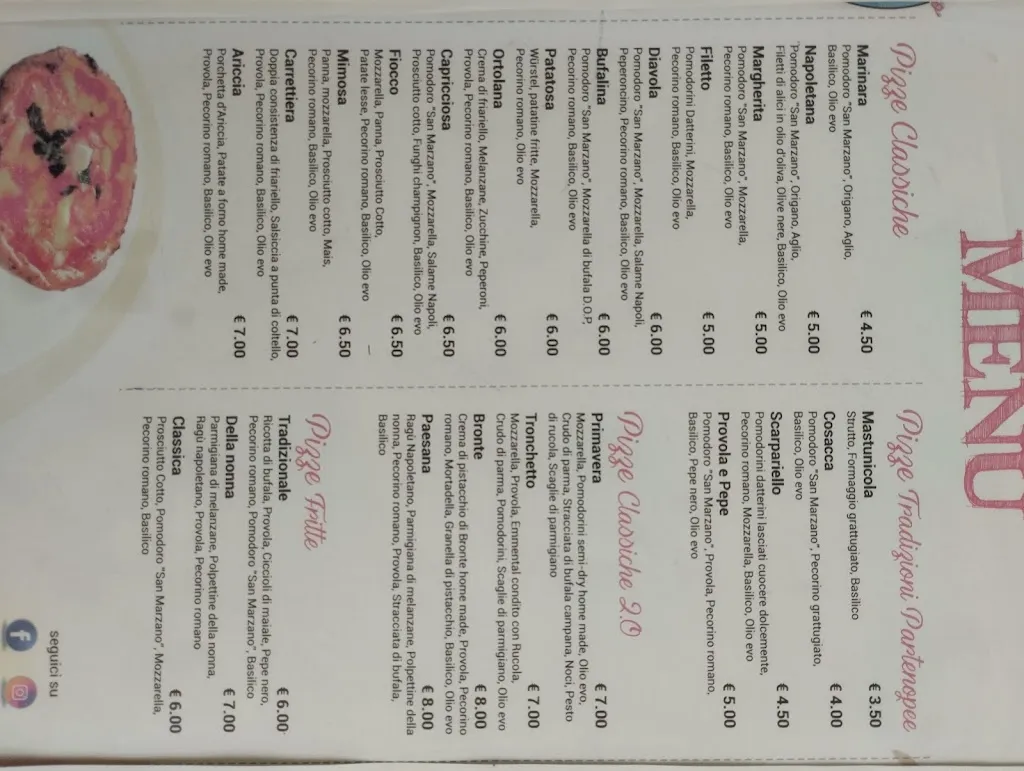 MENU
Pizze Classiche
Marinara € 4.50
Pomodoro "San Marzano", Origano, Aglio,
Basilico, Olio evo
Napoletana € 5.00
"Pomodoro "San Marzano", Origano, Aglio,
Filetti di alici in olio d'oliva, Olive nere, Basilico, Olio evo
Margherita € 5.00
Pomodoro "San Marzano", Mozzarella,
Pecorino romano, Basilico, Olio evo
Filetto € 5.00
Pomodorini Datterini, Mozzarella,
Pecorino romano, Basilico, Olio evo
Diavola € 6.00
Pomodoro "San Marzano", Mozzarella, Salame Napoli,
Peperoncino, Pecorino romano, Basilico, Olio evo
Bufalina € 6.00
Pomodoro "San Marzano", Mozzarella di bufala D.O.P,
Pecorino romano, Basilico, Olio evo
Patatosa € 6.00
Würstel, patatine fritte, Mozzarella,
Pecorino romano, Olio evo
Ortolana € 6.00
Crema di friariello, Melanzane, Zucchine, Peperoni,
Provola, Pecorino romano, Basilico, Olio evo
Capricciosa € 6.50
Pomodoro "San Marzano", Mozzarella, Salame Napoli,
Prosciutto cotto, Funghi champignon, Basilico, Olio evo
Fiocco € 6.50
Mozzarella, Panna, Prosciutto Cotto,
Patate lesse, Pecorino romano, Basilico, Olio evo
Mimosa € 6.50
Panna, mozzarella, Prosciutto cotto, Mais,
Pecorino romano, Basilico, Olio evo
Carrettiera € 7.00
Doppia consistenza di friariello, Salsiccia a punta di coltello,
Provola, Pecorino romano, Basilico, Olio evo
Ariccia € 7.00
Porchetta d'Ariccia, Patate a forno home made,
Provola, Pecorino romano, Basilico, Olio evo
Pizze Tradizioni Partenopee
Mastunicola € 3.50
Strutto, Formaggio grattugiato, Basilico
Cosacca € 4.00
Pomodoro "San Marzano", Pecorino grattugiato,
Basilico, Olio evo
Scarpariello € 4.50
Pomodorini datterini lasciati cuocere dolcemente,
Pecorino romano, Mozzarella, Basilico, Olio evo
Provola e Pepe € 5.00
Pomodoro "San Marzano", Provola, Pecorino romano,
Basilico, Pepe nero, Olio evo
Pizze Classiche 2.0
Primavera € 7.00
Mozzarella, Pomodorini semi-dry home made, Olio evo,
Crudo di parma, Stracciata di bufala campana, Noci, Pesto
di rucola, Scaglie di parmigiano
Tronchetto € 7.00
Mozzarella, Provola, Emmental condito con Rucola,
Crudo di parma, Pomodorini, Scaglie di parmigiano, Olio evo
Bronte € 8.00
Crema di pistacchio di Bronte home made, Provola, Pecorino
romano, Mortadella, Granella di pistacchio, Basilico, Olio evo
Paesana € 8.00
Ragù Napoletano, Parmigiana di melanzane, Polpettine della
nonna, Pecorino romano, Provola, Stracciata di bufala,
Basilico
Pizze Fritte
Tradizionale € 6.00
Ricotta di bufala, Provola, Ciccioli di maiale, Pepe nero,
Pecorino romano, Pomodoro "San Marzano", Basilico
Della nonna € 7.00
Parmigiana di melanzane, Polpettine della nonna,
Ragù napoletano, Provola, Pecorino romano
Classica € 6.00
Prosciutto Cotto, Pomodoro "San Marzano", Mozzarella,
Pecorino romano, Basilico
seguici su